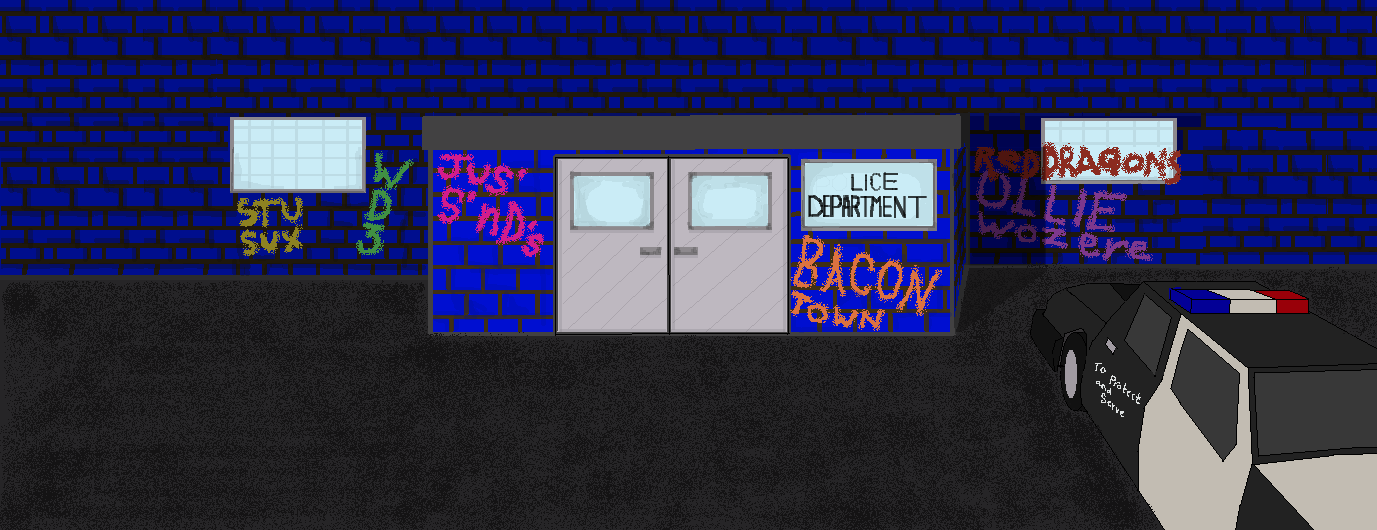 STU
SUX
WDS
JUS'
S'nD's
LICE
DEPARTMENT
BACON
TOWN
RED DRAGONS
OLLIE
woz ere
To Protect
and
Serve